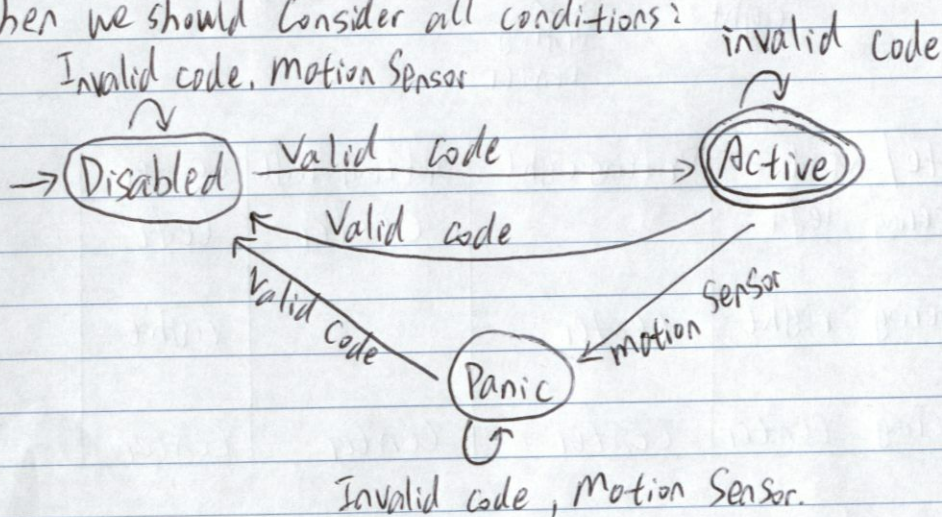 hen we should Consider all conditions:
invalid code
Invalid code, motion Sensor
Disabled
Valid code
Active
Valid code
Valid Code
motion sensor
Panic
Invalid code, Motion Sensor.